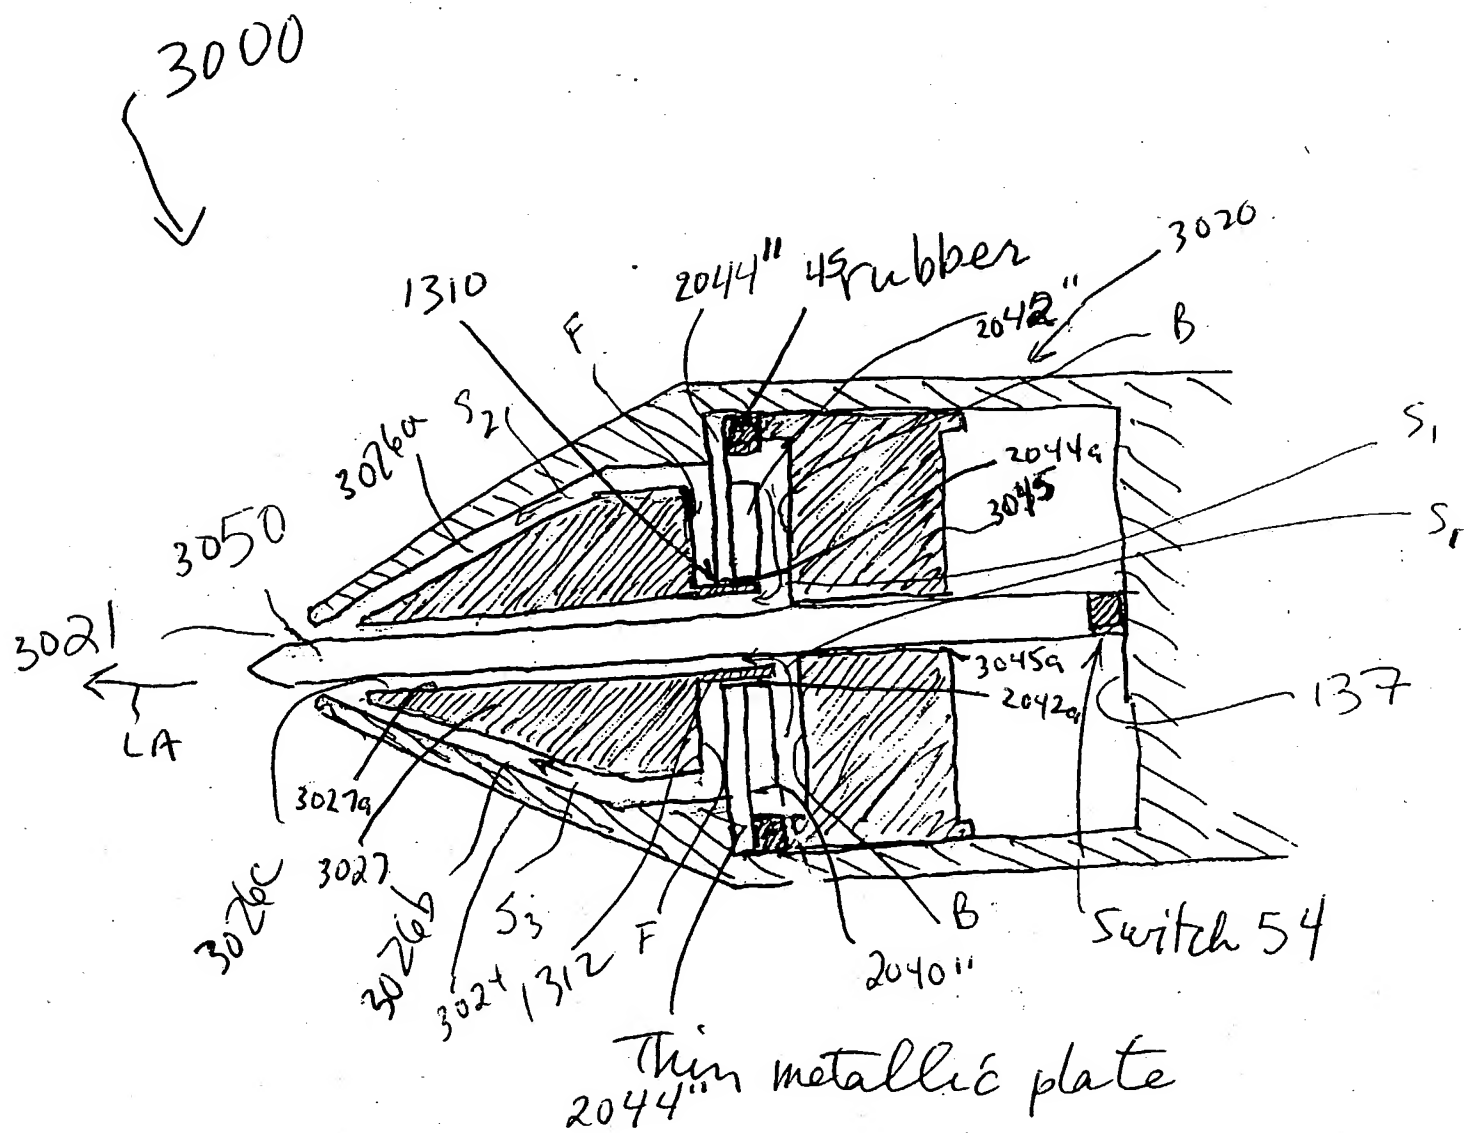 3000
3020
2044" 45 rubber
1310
2042"
F
B
S2
S1
3026a
2044a
3045
S1
3050
3021
3045a
2042a
137
LA
3027a
3027
3026c
3026b
S3
3024
1312
F
B
2040"
Switch 54
Thin metallic plate
2044"